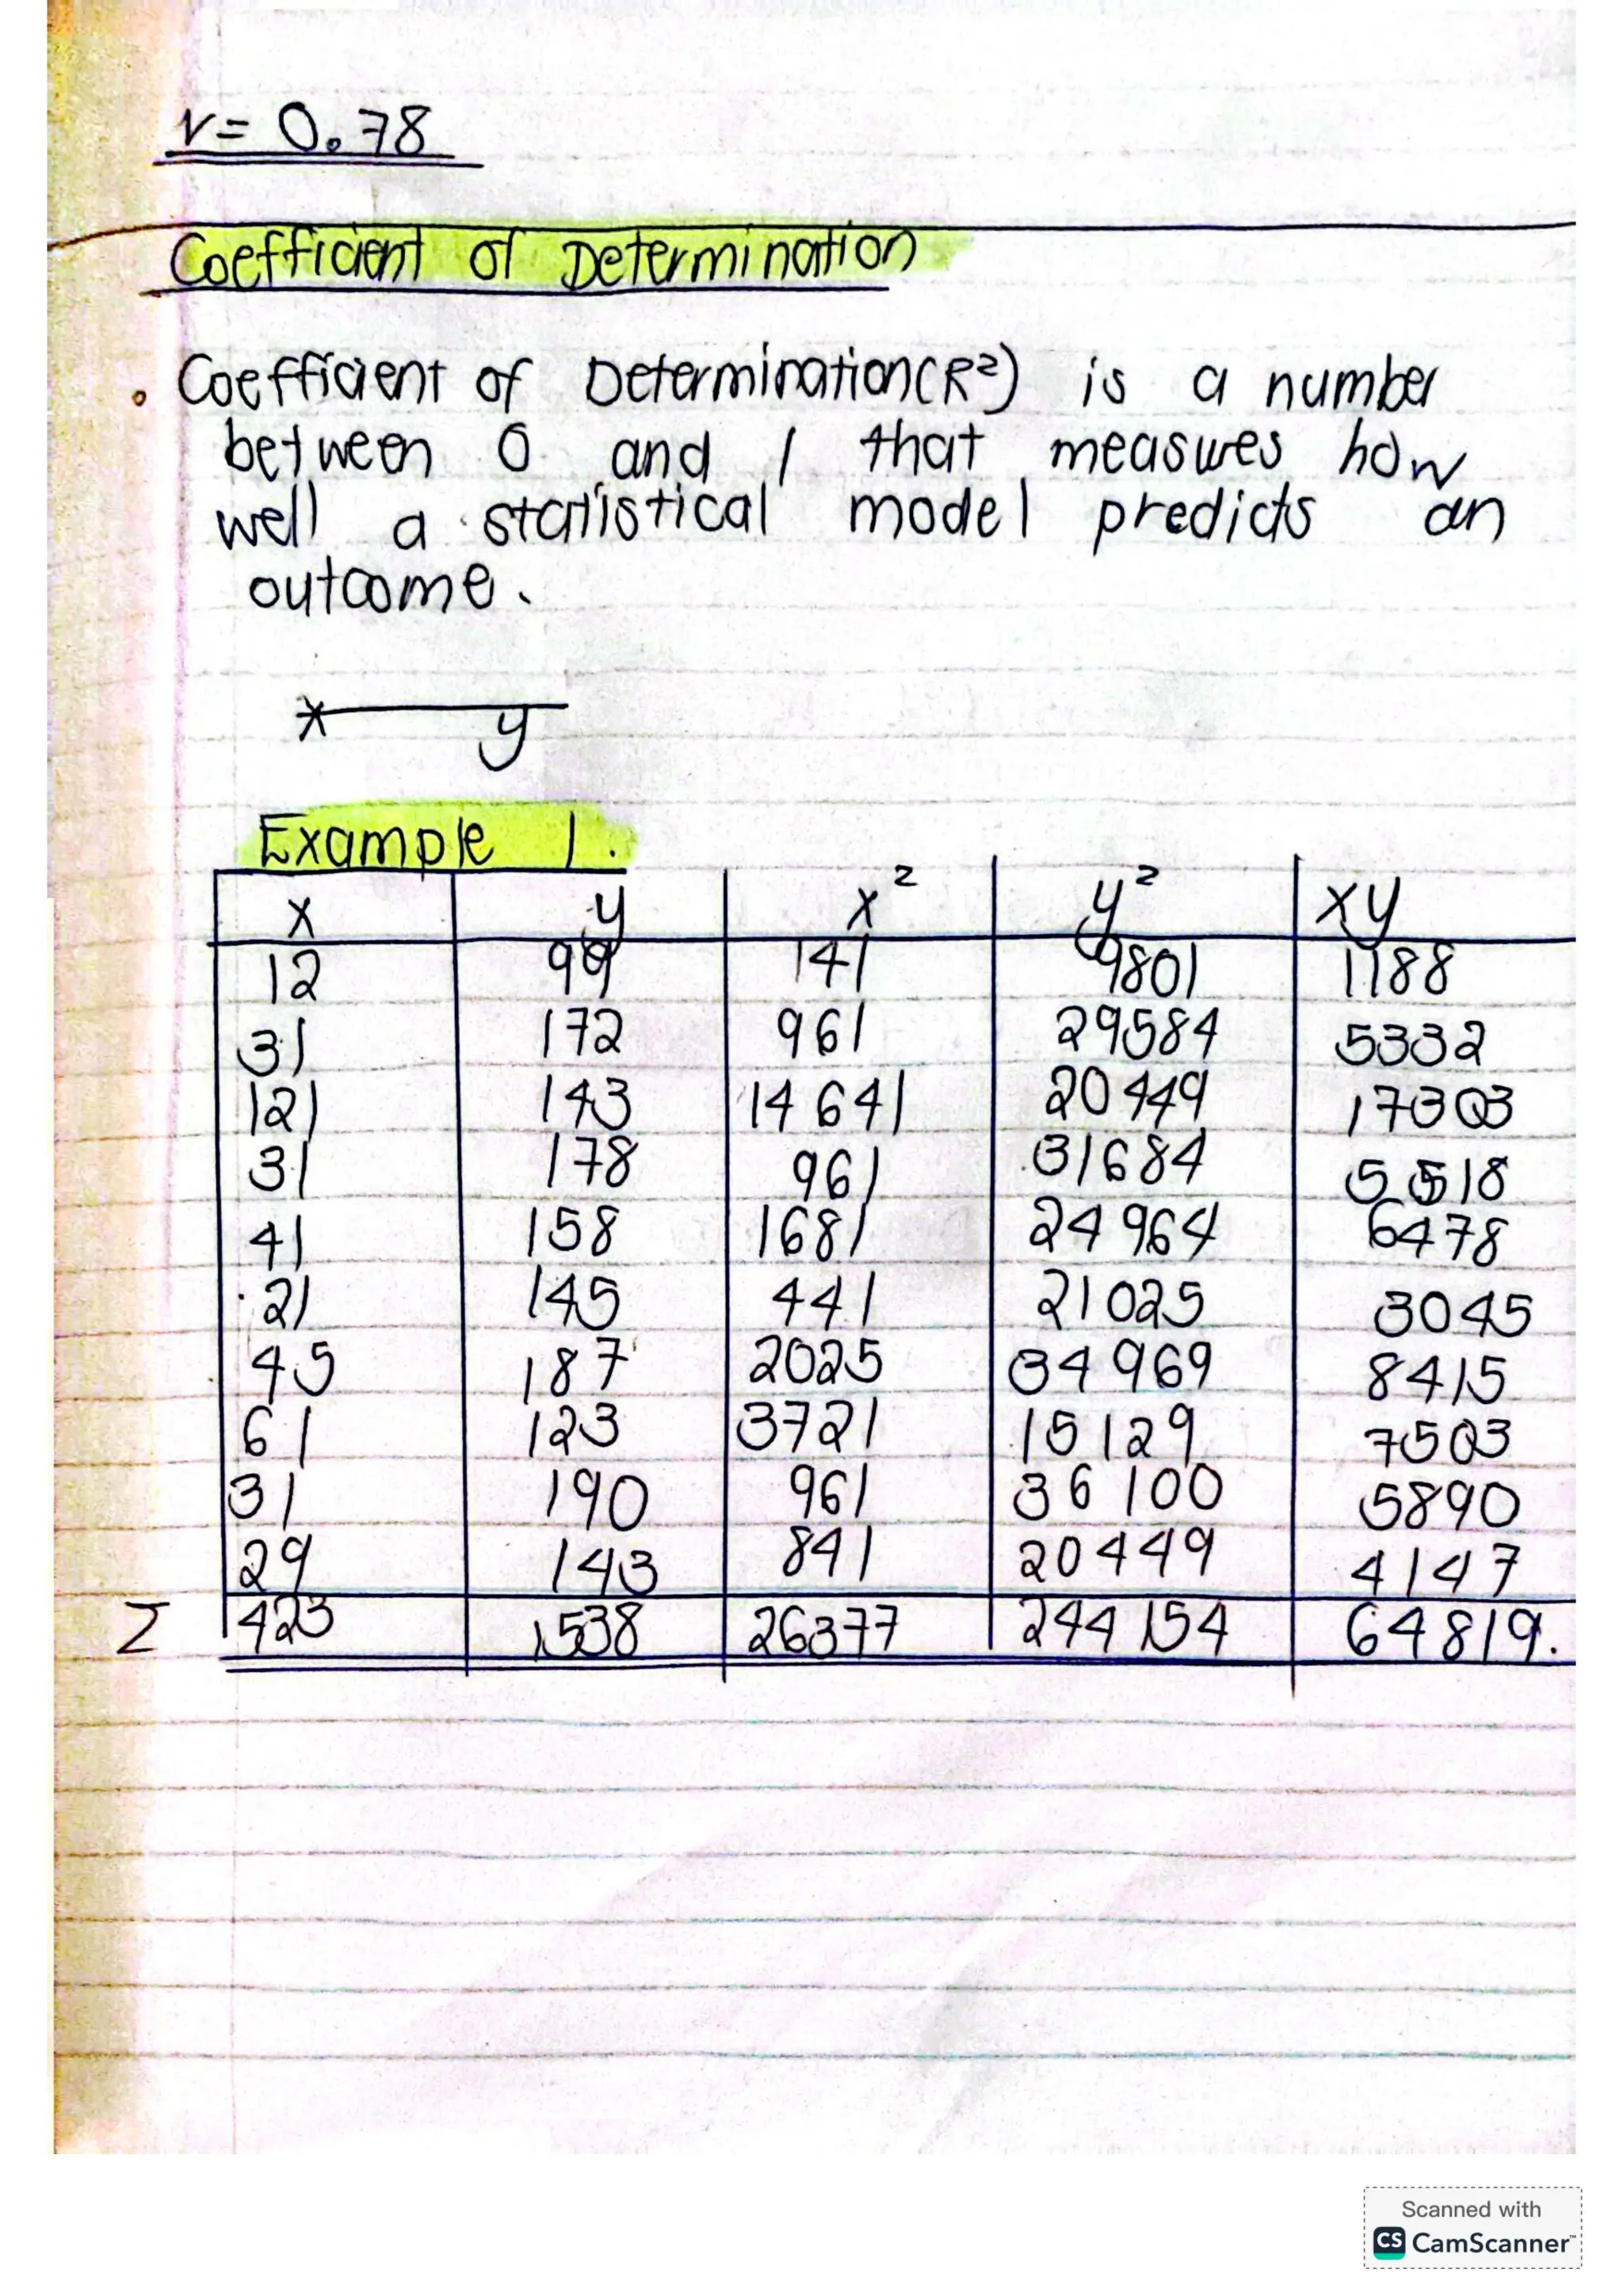 r = 0.78
Coefficient of Determination
• Coefficient of Determination(R²) is a number
between 0 and 1 that measures how
well a statistical model predicts an
outcome.
x y
Example 1.
x y x² y² xy
12 99 141 9801 1188
31 172 961 29584 5332
121 143 14641 20449 17303
31 178 961 31684 5518
41 158 1681 24964 6478
21 145 441 21025 3045
45 187 2025 34969 8415
61 123 3721 15129 7503
31 190 961 36100 5890
29 143 841 20449 4147
Σ 423 1538 26377 244154 64819.
Scanned with
CS CamScanner™